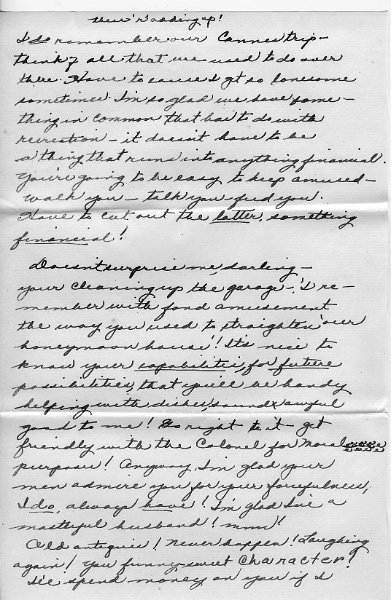 I do remember our Cannes trip -
think of all that we used to do over
there. Have to cause I get so lonesome
sometimes. I'm so glad we have some -
thing in common that has to do with
recreation - it doesn't have to be
a thing that runs into anything financial.
You're going to be easy to keep amused -
walk you - talk you - feed you.
Have to cut out the latter, something
financial!
Doesn't surprise me, darling -
your cleaning up the garage - I re -
member with fond amusement
the way you used to straighten our
honeymoon house! It's nice to
know your capabilities, for future
possibilities, that you'll be handy
helping with dishes, sounds awful
good to me! Go right to it - get
friendly with the Colonel for moral
purpose! Anyway, I'm glad your
men admire you for your forcefulness,
I do, always have! I'm glad I've a
masterful husband! mmm!
Old antiques! Never happen! Laughing
again! You funny, sweet character!
I'll spend money on you if I